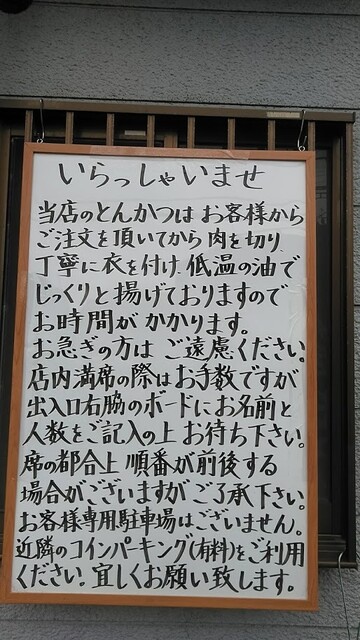 いらっしゃいませ
当店のとんかつは お客様から
ご注文を頂いてから 肉を切り
丁寧に衣を付け 低温の油で
じっくりと揚げておりますので
お時間が かかります。
お急ぎの方は ご遠慮ください。
店内満席の際はお手数ですが
出入口右脇のボードにお名前と
人数をご記入の上 お待ち下さい。
席の都合上 順番が前後する
場合がございますが ご了承下さい。
お客様専用駐車場はございません。
近隣のコインパーキング(有料)をご利用
ください。宜しくお願い致します。